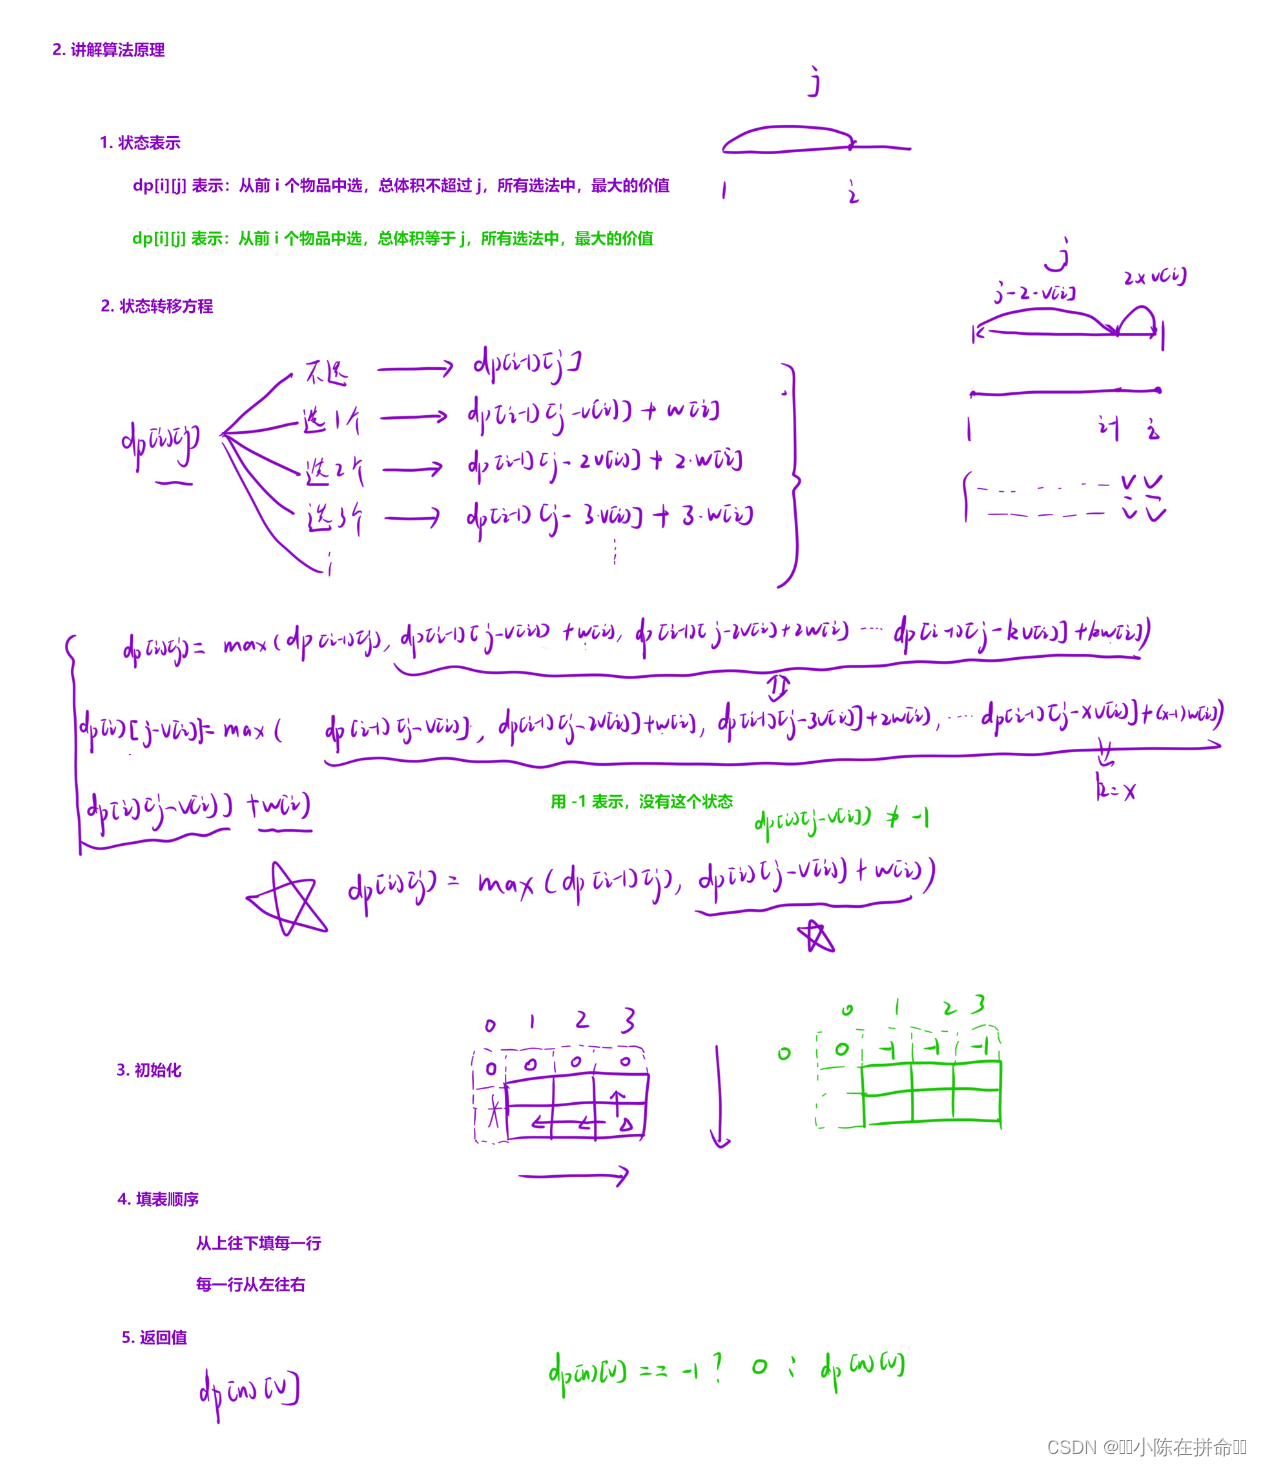 2. 讲解算法原理
j
1. 状态表示
dp[i][j] 表示：从前 i 个物品中选，总体积不超过 j，所有选法中，最大的价值
1 i
dp[i][j] 表示：从前 i 个物品中选，总体积等于 j，所有选法中，最大的价值
j
j-2·v[i] 2×v[i]
2. 状态转移方程
dp[i][j]
不选 → dp[i-1][j]
选1个 → dp[i-1][j-v[i]] + w[i]
选2个 → dp[i-1][j-2v[i]] + 2·w[i]
选3个 → dp[i-1][j-3·v[i]] + 3·w[i]
1 i-1 i
dp[i][j] = max(dp[i-1][j], dp[i-1][j-v[i]] + w[i], dp[i-1][j-2v[i]] + 2w[i] ... dp[i-1][j-kv[i]] + kw[i])
dp[i][j-v[i]] = max( dp[i-1][j-v[i]], dp[i-1][j-2v[i]] + w[i], dp[i-1][j-3v[i]] + 2w[i], ... dp[i-1][j-xv[i]] + (x-1)w[i])
k=x
dp[i][j-v[i]] + w[i]
用 -1 表示，没有这个状态
dp[i][j-v[i]] ≠ -1
dp[i][j] = max(dp[i-1][j], dp[i][j-v[i]] + w[i])
3. 初始化
0 1 2 3
0 0 0 0
0 1 2 3
0 0 -1 -1 -1
4. 填表顺序
从上往下填每一行
每一行从左往右
5. 返回值
dp[n][V]
dp[n][V] == -1 ? 0 : dp[n][V]
CSDN @小陈在拼命